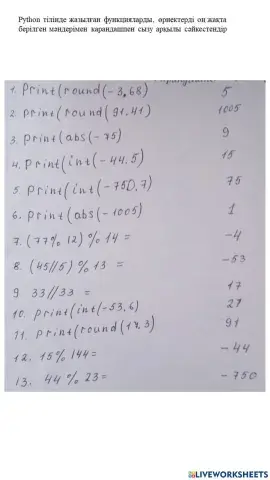 Python тілінде жазылған функцияларды, өрнектерді оң жақта
берілген мәндерімен карандашпен сызу арқылы сәйкестендір
1. print(round(-3,68) 5
2. print(round(91.41) 1005
3. print(abs(-75) 9
4. print(int(-44.5) 15
5. print(int(-750,7) 75
6. print(abs(-1005) 1
7. (77% 12) % 14 = -4
8. (45//5) % 13 = -53
9 33//33 = 17
10. print(int(-53,6) 21
11. print(round(17,3) 91
12. 15% 144= -44
13. 44 % 23= -750
LIVEWORKSHEETS